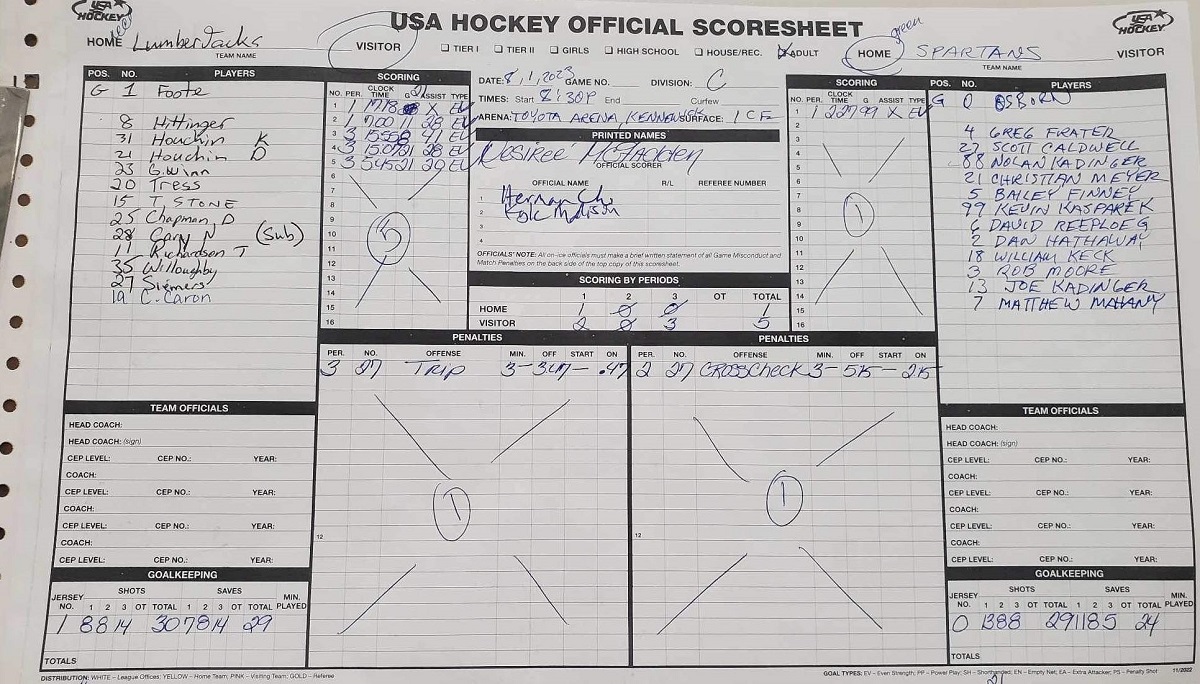 USA HOCKEY
USA HOCKEY OFFICIAL SCORESHEET
USA HOCKEY
HOME LumberJacks VISITOR
TEAM NAME
☐ TIER I ☐ TIER II ☐ GIRLS ☐ HIGH SCHOOL ☐ HOUSE/REC. ☒ ADULT
green
HOME SPARTANS VISITOR
TEAM NAME
POS. NO. PLAYERS
G 1 Foote
8 Hittinger
31 Houchin K
21 Houchin D
23 G.Winn
20 Tress
15 T. STONE
25 Chapman, D
28 Cary N (Sub)
11 Richardson T
35 Willoughby
27 Siemers
19 C. Caron
SCORING
NO. PER. CLOCK TIME G ASSIST TYPE
1 1 1778 X EV
2 1 700 11 28 EV
3 3 1558 41 EV
4 3 1507 21 28 EV
5 3 545 21 20 EV
6
7
8
9
10
11
12
13
14
15
16
5
DATE: 8, 1, 2023 GAME NO. DIVISION: C
TIMES: Start 8:30P End Curfew
ARENA: TOYOTA ARENA, KENNEWICK SURFACE: ICE
PRINTED NAMES
Desiree' McFadden
OFFICIAL SCORER
OFFICIAL NAME R/L REFEREE NUMBER
1 Herman Ch.
2 Kole Madison
3
4
OFFICIALS' NOTE: All on-ice officials must make a brief written statement of all Game Misconduct and
Match Penalties on the back side of the top copy of this scoresheet.
SCORING BY PERIODS
1 2 3 OT TOTAL
HOME 1 0 0 1
VISITOR 2 0 3 5
SCORING
NO. PER. CLOCK TIME G ASSIST TYPE
1 1 227 99 X EV
2
3
4
5
6
7
8
9
10
11
12
13
14
15
16
1
POS. NO. PLAYERS
G 0 OSBORN
4 GREG FRATER
27 SCOTT CALDWELL
88 NOLAN KADINGER
21 CHRISTIAN MEYER
5 BAILEY FINNEY
99 KEVIN KASPAREK
6 DAVID REEPLOEG
2 DAN HATHAWAY
18 WILLIAM KECK
3 ROB MOORE
13 JOE KADINGER
7 MATTHEW MAHANY
PENALTIES
PER. NO. OFFENSE MIN. OFF START ON
3 27 TRIP 3 - 347 - .47
12
1
PENALTIES
PER. NO. OFFENSE MIN. OFF START ON
2 27 CROSSCHECK 3 - 515 - 215
12
1
TEAM OFFICIALS
HEAD COACH:
HEAD COACH: (sign)
CEP LEVEL: CEP NO.: YEAR:
COACH:
CEP LEVEL: CEP NO.: YEAR:
COACH:
CEP LEVEL: CEP NO.: YEAR:
COACH:
CEP LEVEL: CEP NO.: YEAR:
GOALKEEPING
JERSEY NO. SHOTS 1 2 3 OT TOTAL SAVES 1 2 3 OT TOTAL MIN. PLAYED
1 8 8 14 30 7 8 14 29
TOTALS
TEAM OFFICIALS
HEAD COACH:
HEAD COACH: (sign)
CEP LEVEL: CEP NO.: YEAR:
COACH:
CEP LEVEL: CEP NO.: YEAR:
COACH:
CEP LEVEL: CEP NO.: YEAR:
COACH:
CEP LEVEL: CEP NO.: YEAR:
GOALKEEPING
JERSEY NO. SHOTS 1 2 3 OT TOTAL SAVES 1 2 3 OT TOTAL MIN. PLAYED
0 13 8 8 29 11 8 5 24
TOTALS
DISTRIBUTION: WHITE – League Offices; YELLOW – Home Team; PINK – Visiting Team; GOLD – Referee
GOAL TYPES: EV – Even Strength; PP – Power Play; SH – Shorthanded; EN – Empty Net; EA – Extra Attacker; PS – Penalty Shot 11/2022
21